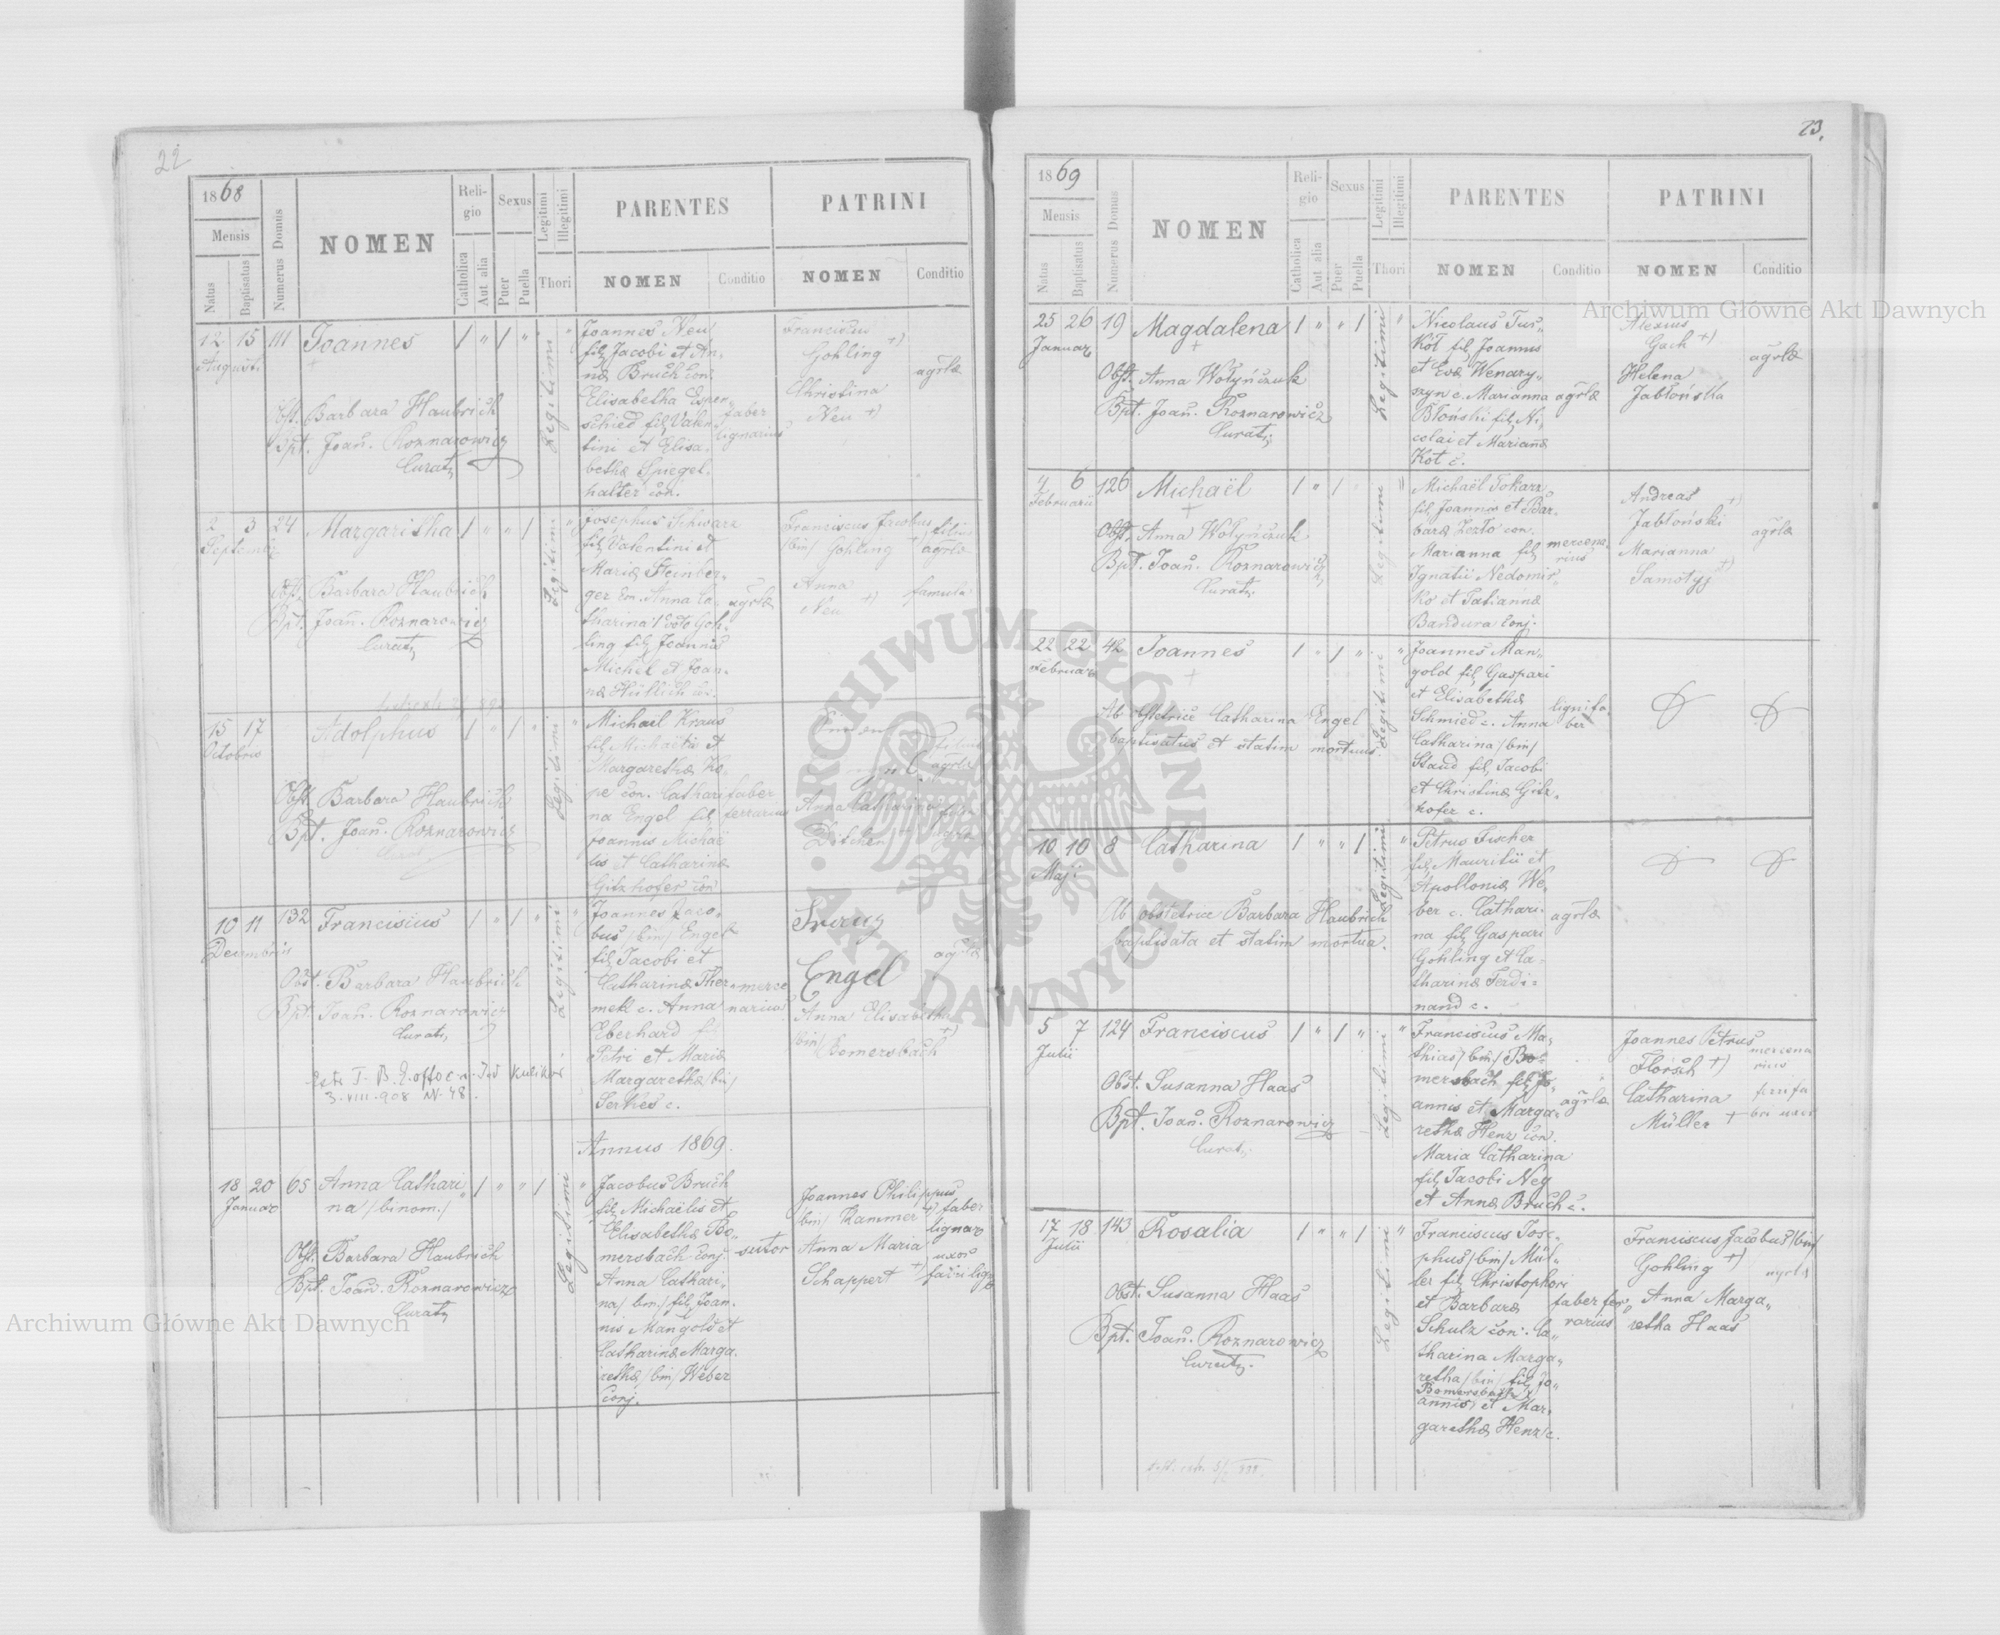 22
1868
Mensis
Natus
Baptisatus
Numerus Domus
NOMEN
Religio
Catholica
Aut alia
Sexus
Puer
Puella
Legitimi
Illegitimi
Thori
PARENTES
NOMEN
Conditio
PATRINI
NOMEN
Conditio
12 15 111 Joannes / " / "
Augusti
Legitimi
Obst. Barbara Haubrich
Bpt. Joañ. Roznarowicz
Curat
Joannes Neu
fil Jacobi et An-
næ Bruch con.
Elisabetha Espen-
schied fil Valen-
tini et Elisa-
bethæ Spiegel-
halter con.
faber
lignarius
Franciscus
Gohling +)
Christina
Neu +)
agrlæ
2 3 24 Margaritha / " " /
Septembr
Legitimi
Obst. Barbara Haubrich
Bpt. Joañ. Roznarowicz
Curat
Josephus Schwarz
fil Valentini et
Mariæ Steinber-
ger con. Anna Ca-
tharina Goh-
ling fil Joannis
Michel et Joan-
næ
agrlæ
Franciscus Jacobus
/bin/ Gohling +)
Anna
Neu +)
filius
agrlæ
famula
15 17 Adolphus / " / "
Octobris
Legitimi
Obst. Barbara Haubrich
Bpt. Joañ. Roznarowicz
Michael Kraus
fil Michaëlis et
Margarethæ Ko-
pe con. Cathari-
na Engel fil
Joannis Michaë-
lis et Catharinæ
Gitzhofer con
faber
ferrarius
Anna Catharina
10 11 132 Franciscus / " / "
Decembris
Legitimi
Obst. Barbara Haubrich
Bpt. Joañ. Roznarowicz
Curat
3. VIII. 908 N. 48.
Joannes Jaco-
bus /bin/ Engel
fil Jacobi et
Catharinæ Ther-
mek c. Anna
Eberhard fil
Petri et Mariæ
Margarethæ /bin/
Serkes c.
merce
narius
Franz
Engel
Anna Elisabetha
/bin/ Bomersbach +)
agrlæ
Annus 1869.
18 20 65 Anna Cathari- / " " /
Januar na /binom./
Legitimi
Obst. Barbara Haubrich
Bpt. Joañ. Roznarowicz
Curat
Jacobus Bruch
fil Michaëlis et
Elisabethæ Bo-
mersbach conj.
Anna Cathari-
na /bin/ fil Joan-
nis Mangold et
Catharinæ Marga-
rethæ /bin/ Weber
conj.
sutor
Joannes Philippus
/bin/ Kammer +)
Anna Maria
Schappert +)
faber
lignar
uxor
fabri lig
23.
1869
Mensis
Natus
Baptisatus
Numerus Domus
NOMEN
Religio
Catholica
Aut alia
Sexus
Puer
Puella
Legitimi
Illegitimi
Thori
PARENTES
NOMEN
Conditio
PATRINI
NOMEN
Conditio
25 26 19 Magdalena / " " /
Januar
Legitimi
Obst. Anna Wołyńczuk
Bpt. Joañ. Roznarowicz
Curat.
Nicolaus Tus-
kot fil Joannis
et Evæ Wenary-
szyn c. Marianna
Błoński fil Ni-
colai et Mariannæ
Kot c.
agrlæ
Alexius
Gach +)
Helena
Jabłońska
agrlæ
4 6 126 Michaël / " /
Februarii
Legitimi
Obst. Anna Wołyńczuk
Bpt. Joañ. Roznarowicz
Curat.
Michaël Tokarz
fil Joannis et Bar-
baræ Zezło con.
Marianna fil
Ignatii Niedomir-
ko et Tatiannæ
Bandura conj.
mercena
rius
Andreas
Jabłoński +)
Marianna
Samotyj +)
agrlæ
22 22 42 Joannes / " / "
Februar
Legitimi
Ab obstetrice Catharina Engel
baptisatus et statim mortuus.
Joannes Man-
gold fil Gaspari
et Elisabethæ
Schmied c. Anna
Catharina /bin/
Staud fil Jacobi
et Christinæ Gitz-
hofer c.
lignifa-
ber
10 10 8 Catharina / " " /
Maj.
Legitimi
Ab obstetrice Barbara Haubrich
baptisata et statim mortua.
Petrus Fischer
fil Mauritii et
Apolloniæ We-
ber c. Cathari-
na fil Gaspari
Gohling et Ca-
tharinæ Ferdi-
nand c.
agrlæ
5 7 124 Franciscus / " / "
Julii
Legitimi
Obst. Susanna Haas
Bpt. Joañ. Roznarowicz
Curat.
Franciscus Ma-
thias /bin/ Bo-
mersbach fil Jo-
annis et Marga-
rethæ Henz con.
Maria Catharina
fil Jacobi Ney
et Annæ Bruch c.
agrlæ
Joannes Petrus
Flörsch +)
Catharina
Müller +
mercena
rius
ferrifa
bri uxor
17 18 143 Rosalia / " " /
Julii
Legitimi
Obst. Susanna Haas
Bpt. Joañ. Roznarowicz
Curat.
Franciscus Jose-
phus /bin/ Mül-
ler fil Christophori
et Barbaræ
Schulz con. Ca-
tharina Marga-
retha /bin/ fil Jo-
Bomersbach
annis et Mar-
garethæ Henz c.
faber fer-
rarius
Franciscus Jacobus /bin/
Gohling +)
Anna Marga-
retha Haas
agrlæ
Archiwum Główne Akt Dawnych
Archiwum Główne Akt Dawnych
ARCHIWUM GŁÓWNE AKT DAWNYCH